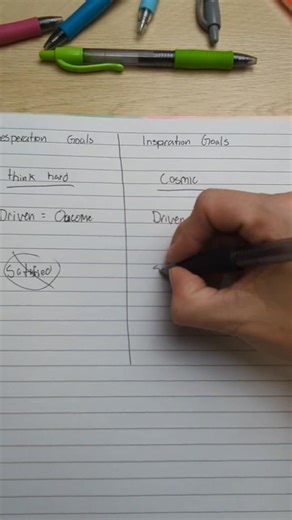 esperation Goals
Inspration Goals
think hard
Cosmic
Driven = Oucome
Driven
Satisfied
S